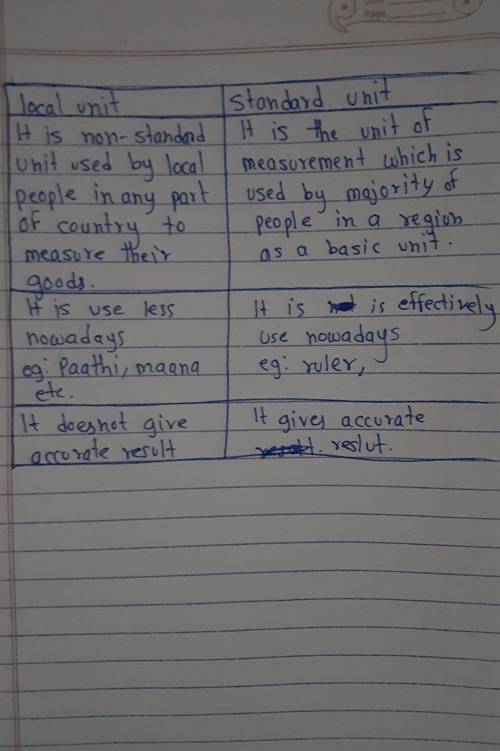 local unit
It is non-standard
unit used by local
people in any part
of country to
measure their
goods.
Standard unit
It is the unit of
measurement which is
used by majority of
people in a region
as a basic unit.
It is use less
nowadays
eg: Paathi, maana
etc.
It is is effectively
use nowadays
eg: ruler,
It doesnot give
accurate result
It gives accurate
reslut.